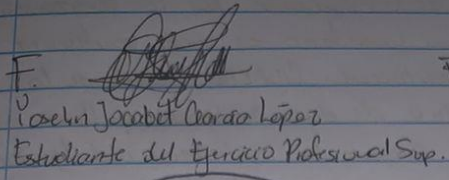 F.
Joselin Jocabet Charcía López
Estudiante del Ejercicio Profesional Sup.